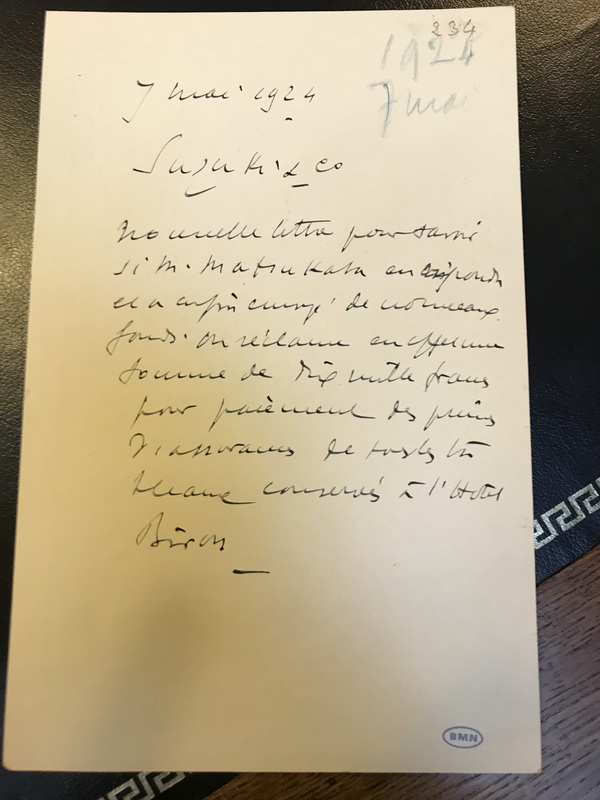 234
1924
7 mai
7 mai 1924
Suzuki & Co
Nouvelle lettre pour savoir
si M. Matsukata a
et a enfin envoyé de nouveaux
fonds. On réclame en effet une
somme de dix mille francs
pour paiement des primes
d'assurances de tous les ta
bleaux conservés à l'Hôtel
Biron
BMN